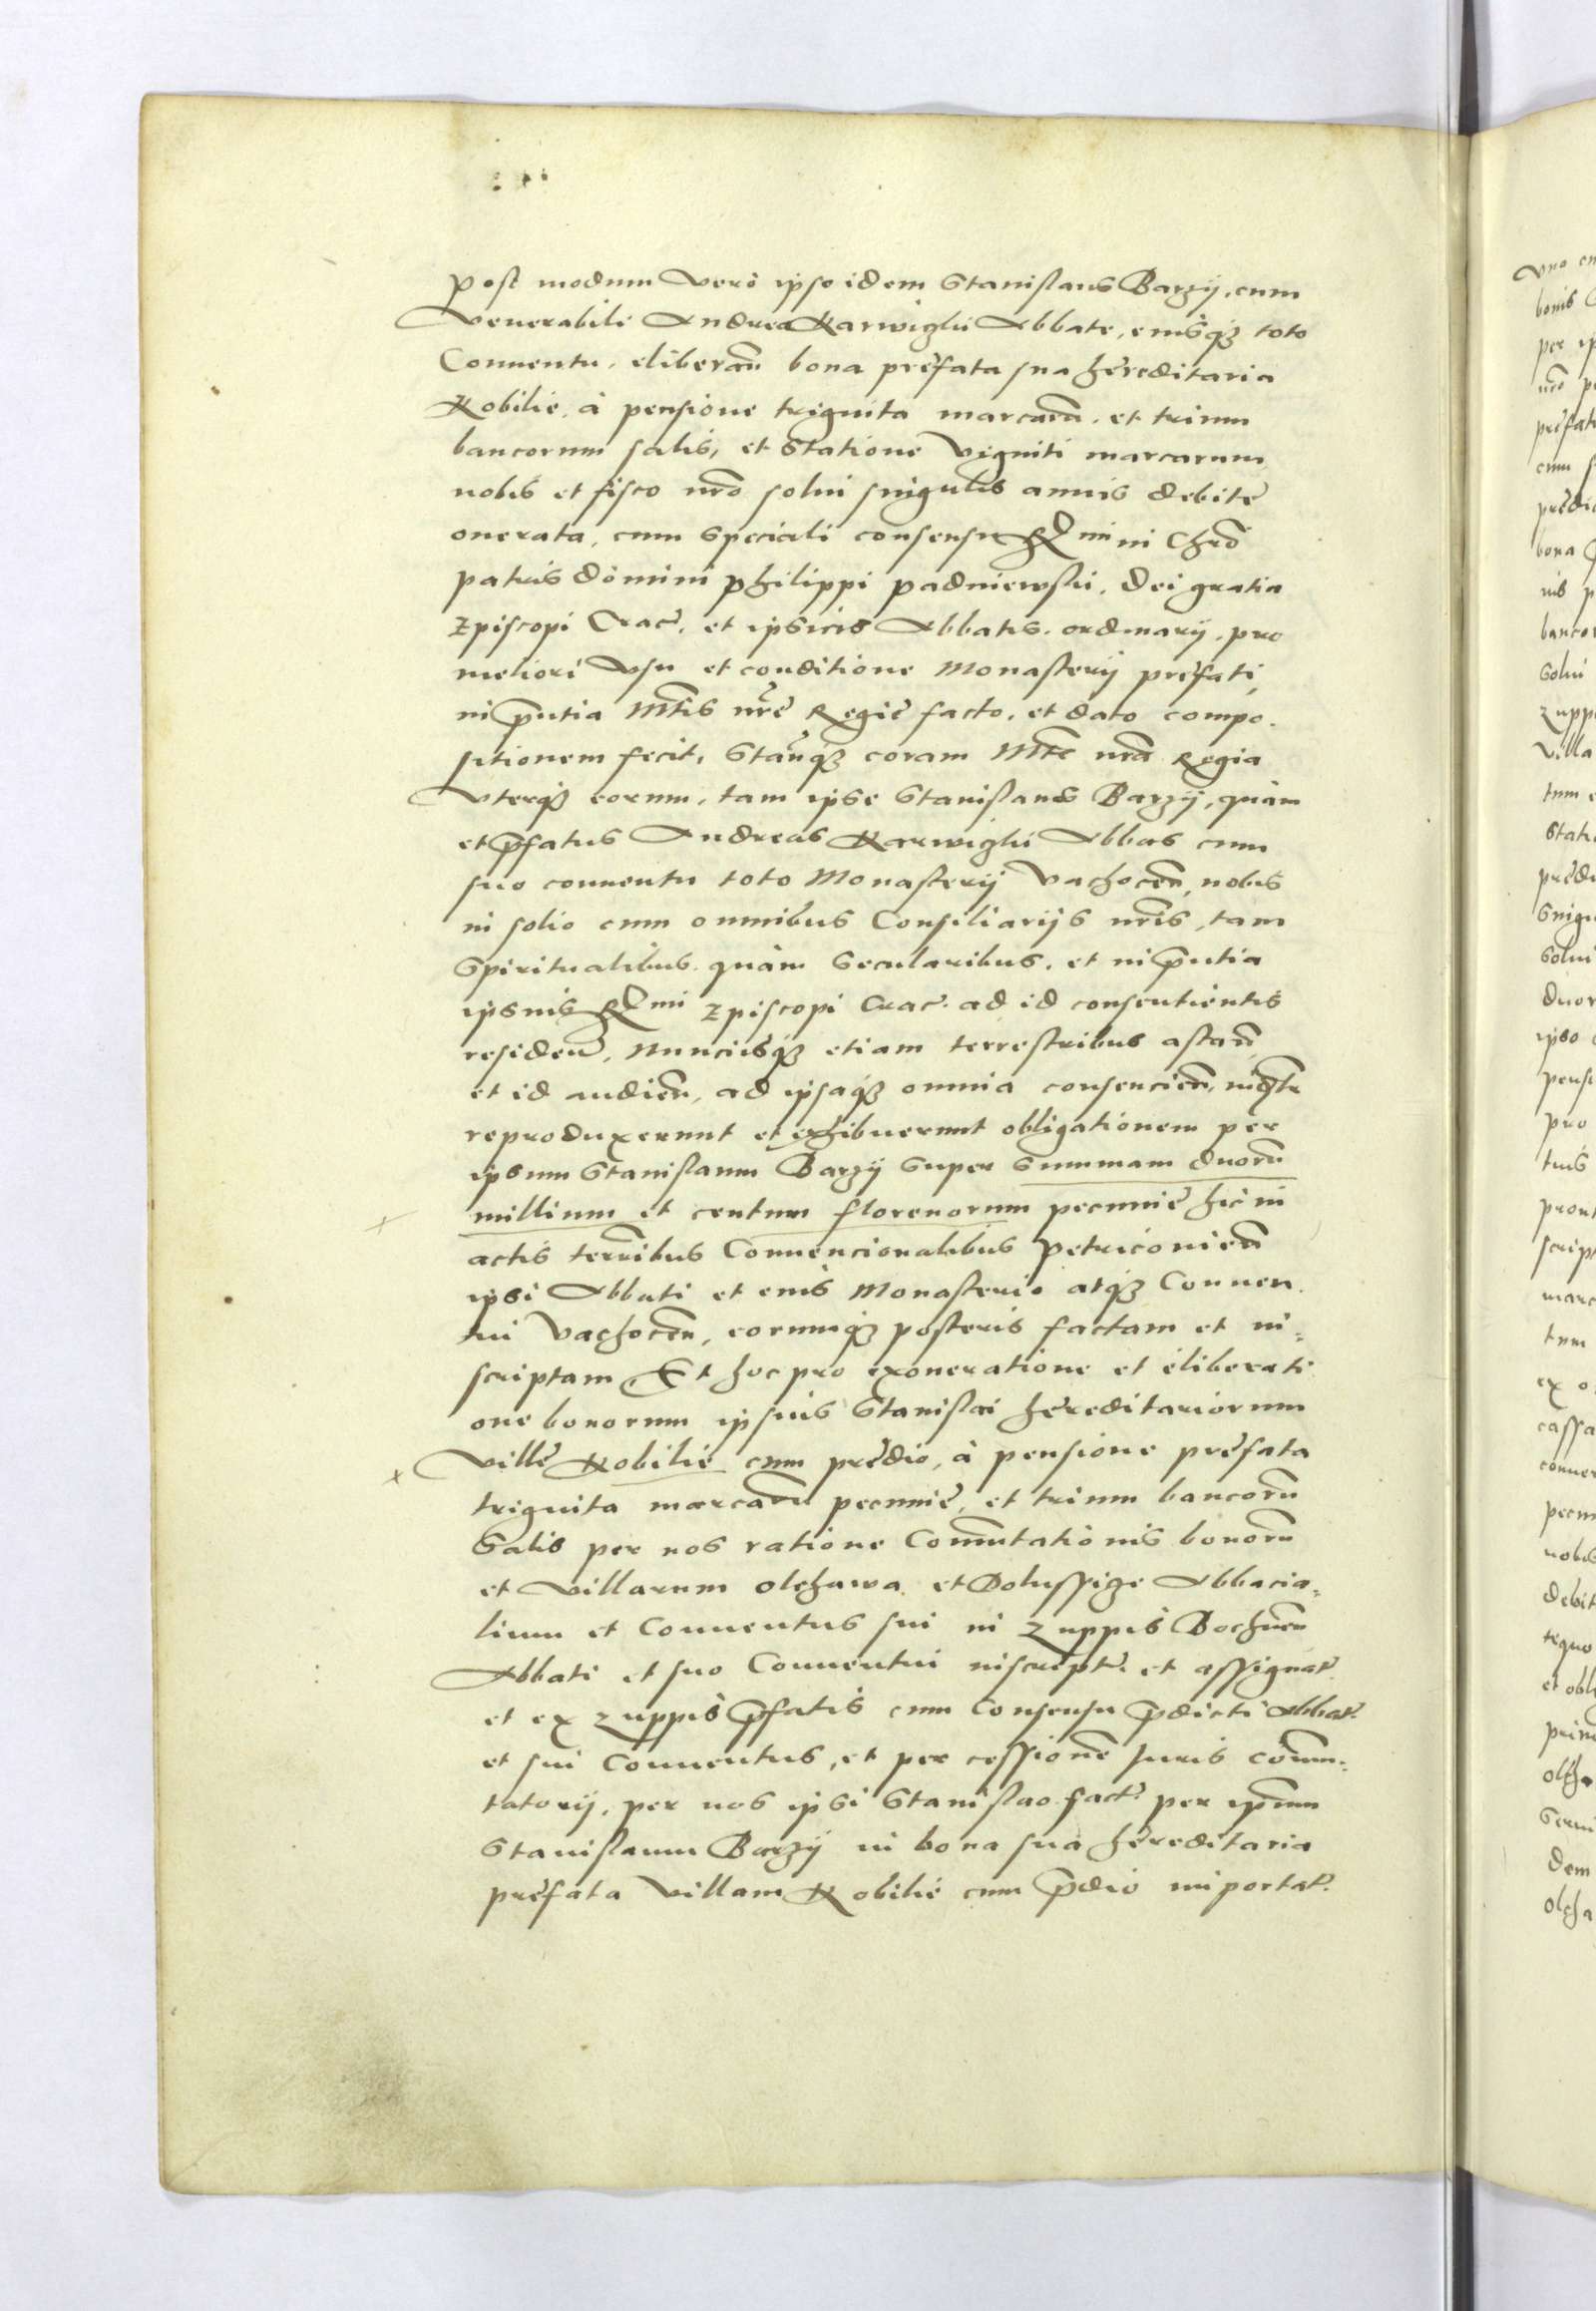 post modum vero ipse idem Stanislaus Barzÿ, cum
Venerabili Andrea Karwiczki Abbate, eiusq̃ toto
Conuentu, eliberañ bona prefata sua hereditaria
Kobilie, à pensione triginta marcarũ, et trium
bancorum salis, et statione viginti marcarum
nobis et fisco nr̃o solui singulis annis debite
onerata, cum speciali consensu R̃mi in Chrõ
patris domini Philippi Padniewski, Dei gratia
Episcopi Crac̃, et ipsius Abbatis ordinarÿ, pro
meliori vsu et conditione Monasterÿ prefati,
in p̃ntia Mt̃is nr̃e Regie facto, et dato compo-
sitionem fecit, Stañq̃ coram Mt̃e nr̃a Regia
Vterq̃ eorum, tam ipse Stanislaus Barzÿ, quàm
et p̃fatus Andreas Karwiczki Abbas cum
suo conuentu toto Monasterÿ Vachoceñ, nobis
in solio cum omnibus Consiliariÿs nr̃is, tam
Spiritualibus quàm secularibus, et in p̃ntia
ipsius R̃mi Episcopi Crac̃ ad id consentientis
resideñ, Nunciisq̃ etiam terrestribus astañ,
et id audieñ, ad ipsaq̃ omnia consencieñ,
reproduxerunt et exhibuerunt obligationem per
ipsum Stanislaum Barzÿ super summam duorũ
millium et centum florenorum pecunie hic in
actis terr̃ibus Conuencionalibus Petricovieñ
ipsi Abbati et eius Monasterio atq̃ Conuen-
tui Vachoceñ, eorumq̃ posteris factam et in-
scriptam, Et hoc pro exoneratione et eliberati
one bonorum ipsius Stanislai hereditariorum
Ville Kobilie cum predio, à pensione prefata
triginta marcarũ pecunie, et trium bancorũ
Salis per nos ratione Com̃utationis bonorũ
et villarum Olchawa et Abbacia-
lium et Conuentus sui in Zuppis Bochneñ
Abbati et suo Conuentui inscript̃, et assignat̃
et ex zuppis p̃fatis cum Consensu p̃dicti Abbat̃
et sui Conuentus, et per cessionẽ Juris com̃u-
tatorÿ, per nos ipsi Stanislao fact̃ per ip̃um
Stanislaum Barzÿ in bona sua hereditaria
prefata villam Kobilie cum p̃dio importat̃